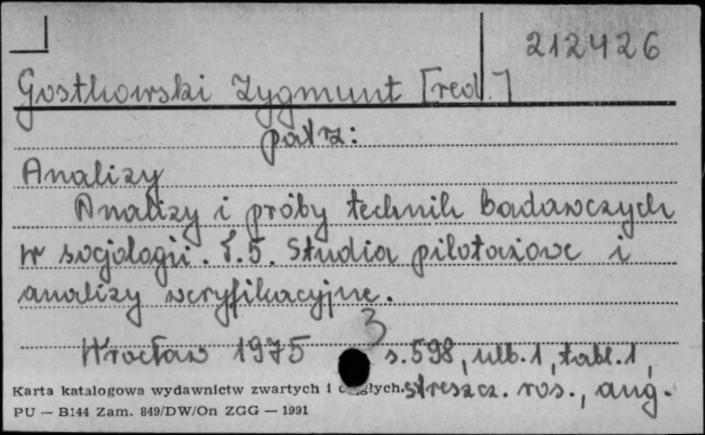 212426
Gostkowski Zygmunt [red.]
patrz:
Analizy
Analizy i próby technik badawczych
w socjologii. T.5. Studia pilotażowe i
analizy weryfikacyjne.
3
Wrocław 1975 s.598, ulb.1, tabl.1,
streszcz. ros., ang.
Karta katalogowa wydawnictw zwartych i
PU — B144 Zam. 849/DW/On ZGG — 1991